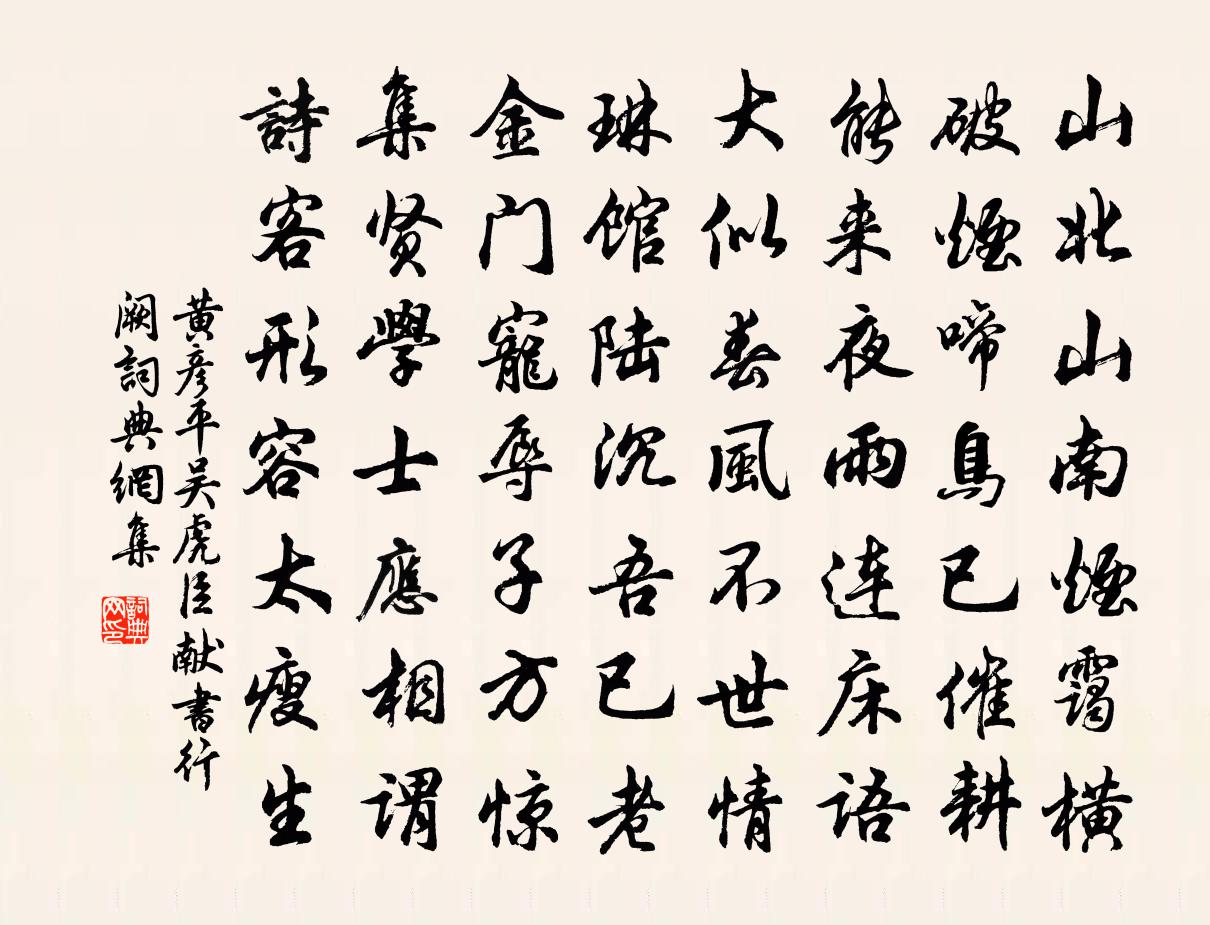 山北山南煙靄橫
破煙啼鳥已催耕
能来夜雨連床語
大似春風不世情
琳馆陆沉吾已老
金门寵辱子方惊
集贤學士應相謂
詩客形容太瘦生
黄彦平吴虎臣献書行
阙詞典網集
詞典
网印